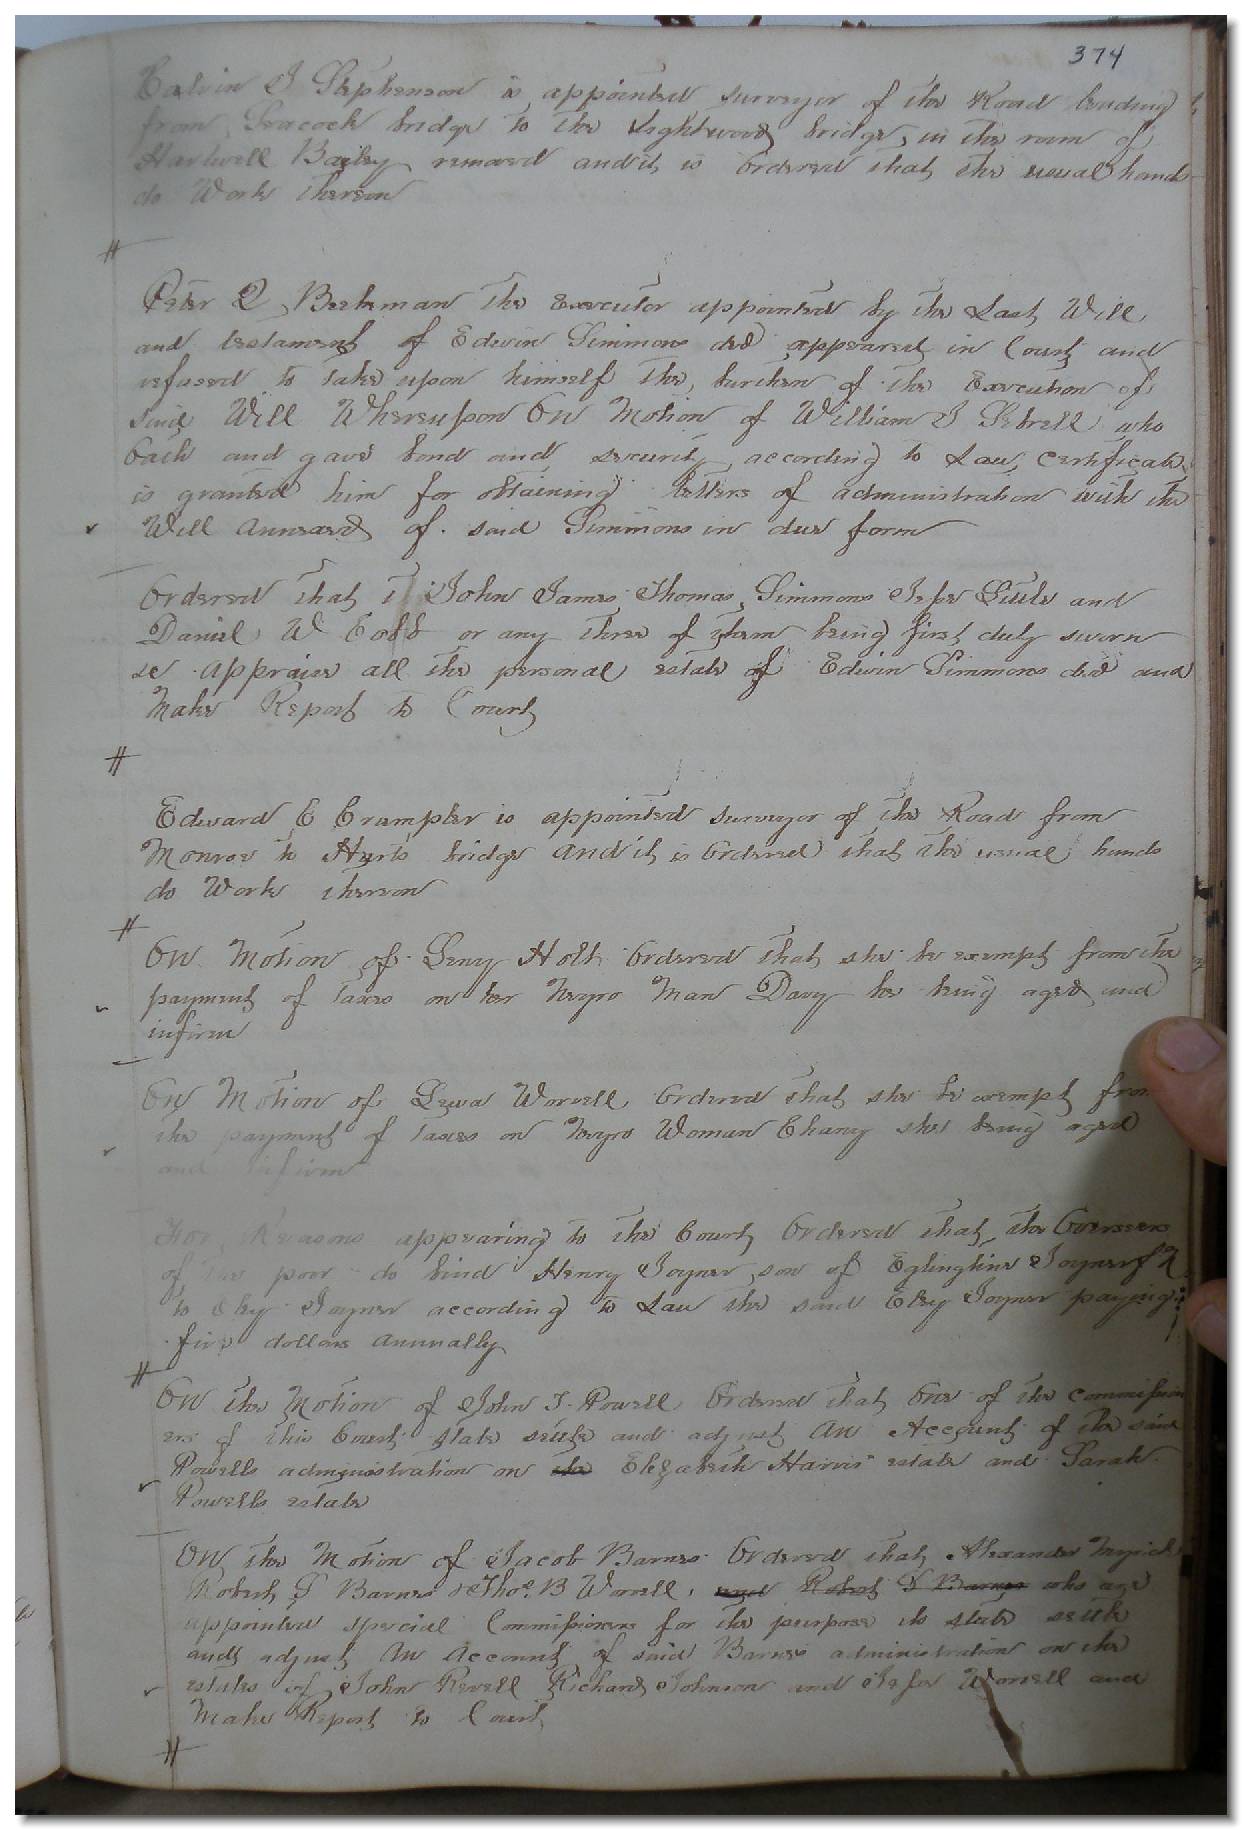 374
Calvin J Stephenson is appointed surveyor of the Road leading
from Peacock bridge to the Lightwood bridge in the room of
Hartwell Bailey removed and it is Ordered that the usual hands
do Work thereon
#
Peter Beekman the Executor appointed by the Last Will
and testament of Edwin Simmons decd appeared in Court and
refused to take upon himself the burthen of the Execution of
said Will Whereupon On Motion of William J Sebrell who
Oath and gave bond and security according to Law, Certificate
is granted him for obtaining letters of administration with the
Will Annexed of said Simmons in due form
Ordered that John James Thomas Simmons Jesse Little and
Daniel W Cobb or any three of them being first duly sworn
se appraise all the personal estate of Edwin Simmons decd and
Make Report to Court
#
Edward E Crumpler is appointed surveyor of the Road from
Monroe to Harts bridge and it is Ordered that the usual hands
do Work thereon
#
On Motion of Holt Ordered that she be exempt from the
payment of taxes on her Negro Man Davy he being aged and
infirm
On Motion of Worrell Ordered that she be exempt from
the payment of taxes on Negro Woman Chany she being aged
and infirm
For Reasons appearing to the Court Ordered that the Overseers
of the poor do bind Henry Joyner son of Eglingtine Joyner
to Eley Joyner according to Law the said Eley Joyner paying
five dollars annually
#
On the Motion of John T. Powell Ordered that One of the commission
ers of this Court state settle and adjust An Account of the said
Powells administration on the Elizabeth Harris estate and Sarah
Powells estate
On the Motion of Jacob Barnes Ordered that Alexander Myrick
Robert S Barnes & Thos. B Worrell, and Robert S Barnes who are
appointed special Commissioners for the purpose do state settle
and adjust An Account of said Barnes administration on the
estates of John Revell Richard Johnson and Worrell and
Make Report to Court
#